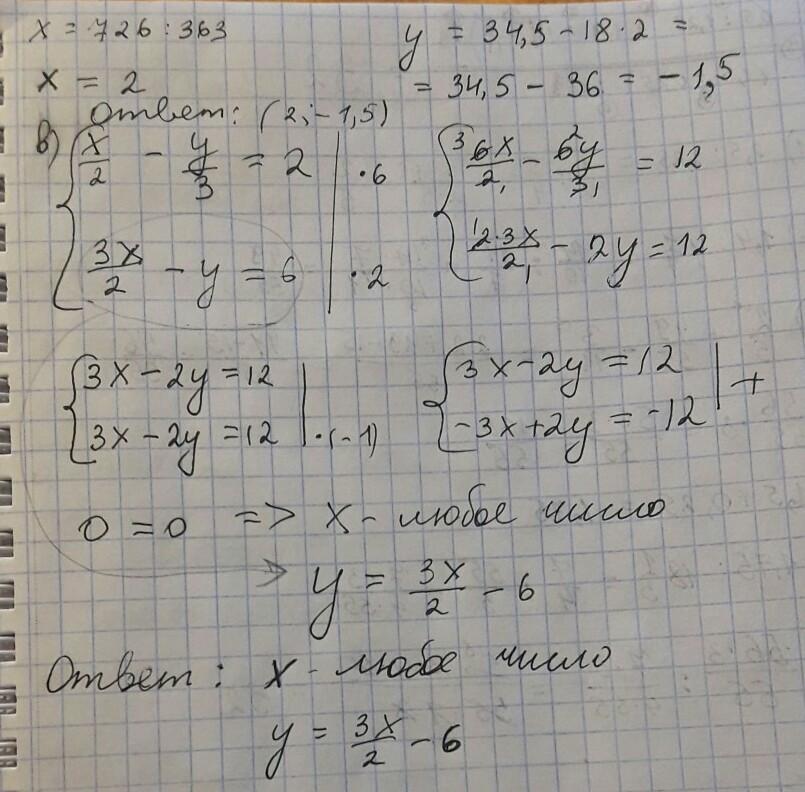 x = 726 : 363
y = 34,5 - 18 · 2 =
x = 2
= 34,5 - 36 = -1,5
Ответ: (2; -1,5)
в) { x/2 - y/3 = 2 | · 6
3x/2 - y = 6 | · 2
{ 3 6x/2 1 - 6 2 y/3 1 = 12
1 2·3x/2 1 - 2y = 12
{ 3x - 2y = 12
3x - 2y = 12 | · (-1)
{ 3x - 2y = 12
-3x + 2y = -12 | +
0 = 0 => x - любое число
y = 3x/2 - 6
Ответ: x - любое число
y = 3x/2 - 6